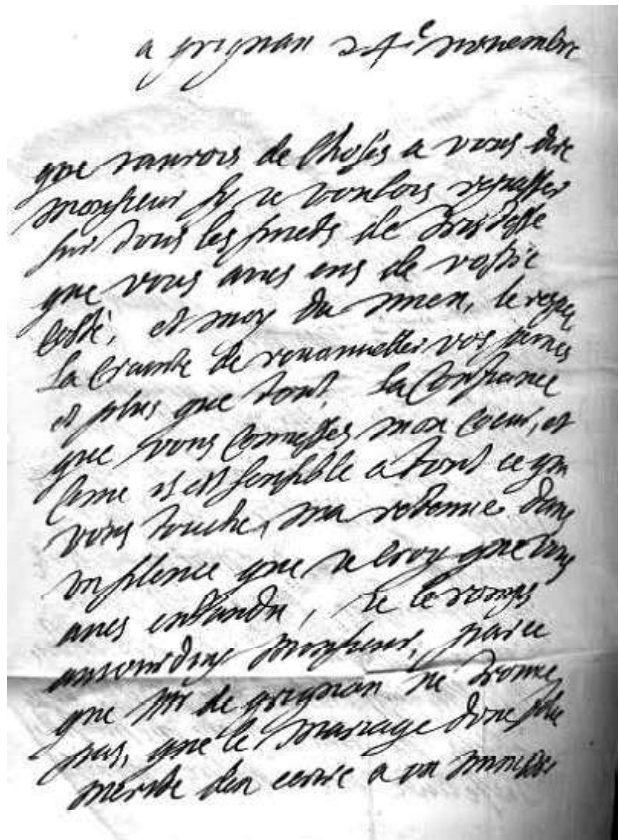 a grignan 24e novembre
que iaurois de choses a vous dire
monsieur sy ie voulois repasser
sur tous les suiets de tristesse
que vous aues eus de vostre
costé, et moy du mien, le respec
la crainte de renouueller vos peines
et plus que tout, la confiance
que vous connesses mon coeur, et
come il est sensible a tout ce qui
vous touche, ma retenue dans
un silence que ie croy que vous
aues entandu, ie le romps
auiourdhuy monsieur, parce
que Mr de grignan ne trouue
pas, que le mariage dune fille
merite den ecrire a un ministre